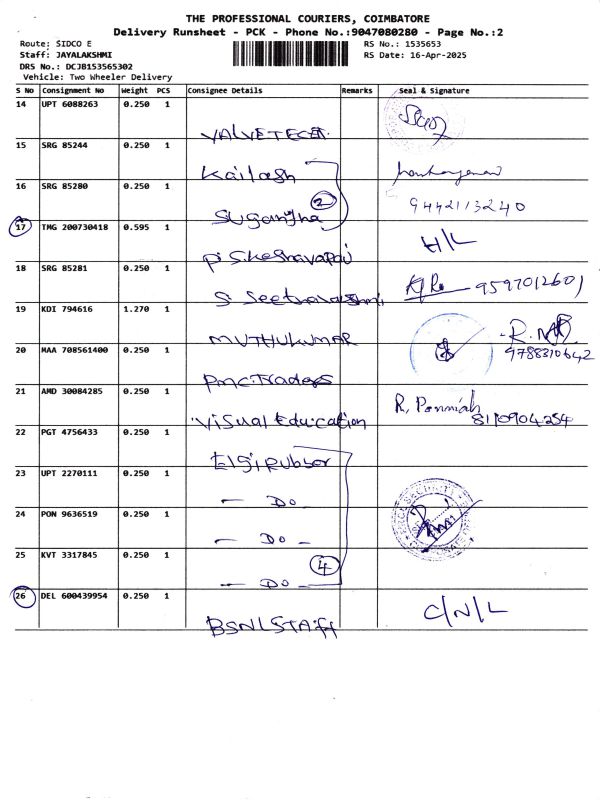 THE PROFESSIONAL COURIERS, COIMBATORE
Delivery Runsheet - PCK - Phone No.:9047080280 - Page No.:2
Route: SIDCO E
RS No.: 1535653
Staff: JAYALAKSHMI
RS Date: 16-Apr-2025
DRS No.: DCJB153565302
Vehicle: Two Wheeler Delivery
S No Consignment No Weight PCS Consignee Details Remarks Seal & Signature
14 UPT 6088263 0.250 1
VALVETECH
15 SRG 85244 0.250 1
Kailash
16 SRG 85280 0.250 1
2
Sugantha 9442113240
17 TMG 200730418 0.595 1
H/L
P. S. Kesavapai
18 SRG 85281 0.250 1
9597012601
S. Seethalakshmi
19 KDI 794616 1.270 1
MUTHUKUMAR
20 MAA 708561400 0.250 1 9788310642
PMC Traders
21 AMD 30084285 0.250 1 R. Ponniah
Visual Education 8110904254
22 PGT 4756433 0.250 1
Elgi Rubber
23 UPT 2270111 0.250 1
- Do -
24 PON 9636519 0.250 1
- Do -
25 KVT 3317845 0.250 1
4
- Do -
26 DEL 600439954 0.250 1 C/N/L
BSNL STAFF